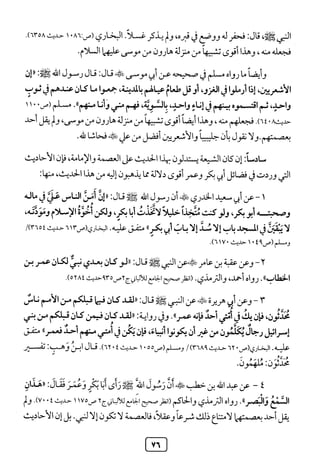 النبي ﷺ، قال: فحفر له ووضع في قبره، ولم يذكر غسلاً. البخاري (ص١٠٨٦ حديث ٦٣٥٨).
فجعله منه، وهذا أقوى تشبيهاً من منزلة هارون من موسى عليهما السلام.
وأيضاً ما رواه مسلم في صحيحه عن أبي موسى ﷺ قال: قال رسول الله ﷺ: «إن
الأشعريين، إذا أرملوا في الغزو، أو قل طعام عيالهم بالمدينة، جمعوا ما كان عندهم في ثوبٍ
واحدٍ، ثم اقتسموه بينهم في إناءٍ واحدٍ، بالسَّوِيَّة، فهم مني وأنا منهم». مسلم (ص١١٠٠
حديث٦٤٠٨). فجعلهم منه، وهذا أيضاً أقوى تشبيهاً من منزلة هارون من موسى، ولم يقل أحد
بعصمتهم. ولا نقول بأن جليبيباً والأشعريين أفضل من علي ﷺ فحاشا لله.
سادساً: إن كان الشيعة يستدلون بهذا الحديث على العصمة والإمامة، فإن الأحاديث
التي وردت في فضائل أبي بكر وعمر أقوى دلالة مما يذهبون إليه من هذا الحديث، منها:
١- عن أبي سعيد الخدري ﷺ أن رسول الله ﷺ قال: «إن أَمَنَّ الناس عَلَيَّ في ماله
وصحبته أبو بكر، ولو كنت مُتَّخِذاً خليلاً لاتَّخَذْتُ أبا بكر، ولكن أُخُوَّةُ الإسلام ومَوَدَّتُه،
لا يَبْقَيَنَّ في المسجد باب إلا سُدَّ إلا بابَ أبي بكر» متفق عليه. البخاري(ص٦١٣ حديث ٣٦٥٤)/
ومسلم (ص١٠٤٩ حديث ٦١٧٠).
٢- وعن عقبة بن عامر ﷺ عن النبي ﷺ قال: «لو كان بعدي نبيٌّ لكان عمر بن
الخطاب». رواه أحمد، والترمذي. (انظر صحيح الجامع للألباني ج٢ ص٩٣٥ حديث ٥٢٨٤).
٣- وعن أبي هريرة ﷺ عن النبي ﷺ قال: «لقد كان فيما قبلكم من الأمم ناسٌ
مُحَدَّثُون، فإن يكُ في أمتي أحدٌ فإنه عمر». وفي رواية: «لقد كان فيمن كان قبلكم من بني
إسرائيل رجالٌ يُكَلَّمُون من غير أن يكونوا أنبياءَ، فإن يَكُن في أمتي منهم أحدٌ فعمر» متفق
عليه. البخاري(ص٦٢٠ حديث ٣٦٨٩)/ ومسلم (ص١٠٥٥ حديث ٦٢٠٤). قال ابنُ وَهبٍ: تفسير
مُحَدَّثُون: مُلهَمُون.
٤- عن عبد الله بن حنطب ﷺ أَنَّ رَسُولَ اللهِ ﷺ رَأَى أَبَا بَكْرٍ وَعُمَرَ فَقَالَ: «هَذَانِ
السَّمْعُ وَالْبَصَر». رواه الترمذي والحاكم (انظر صحيح الجامع للألباني ج٢ ص١١٧٥ حديث ٧٠٠٤). ولم
يقل أحد بعصمتهما لامتناع ذلك شرعاً وعقلاً، فالعصمة لا تكون إلا لنبي. بل إن الأحاديث
٧٦